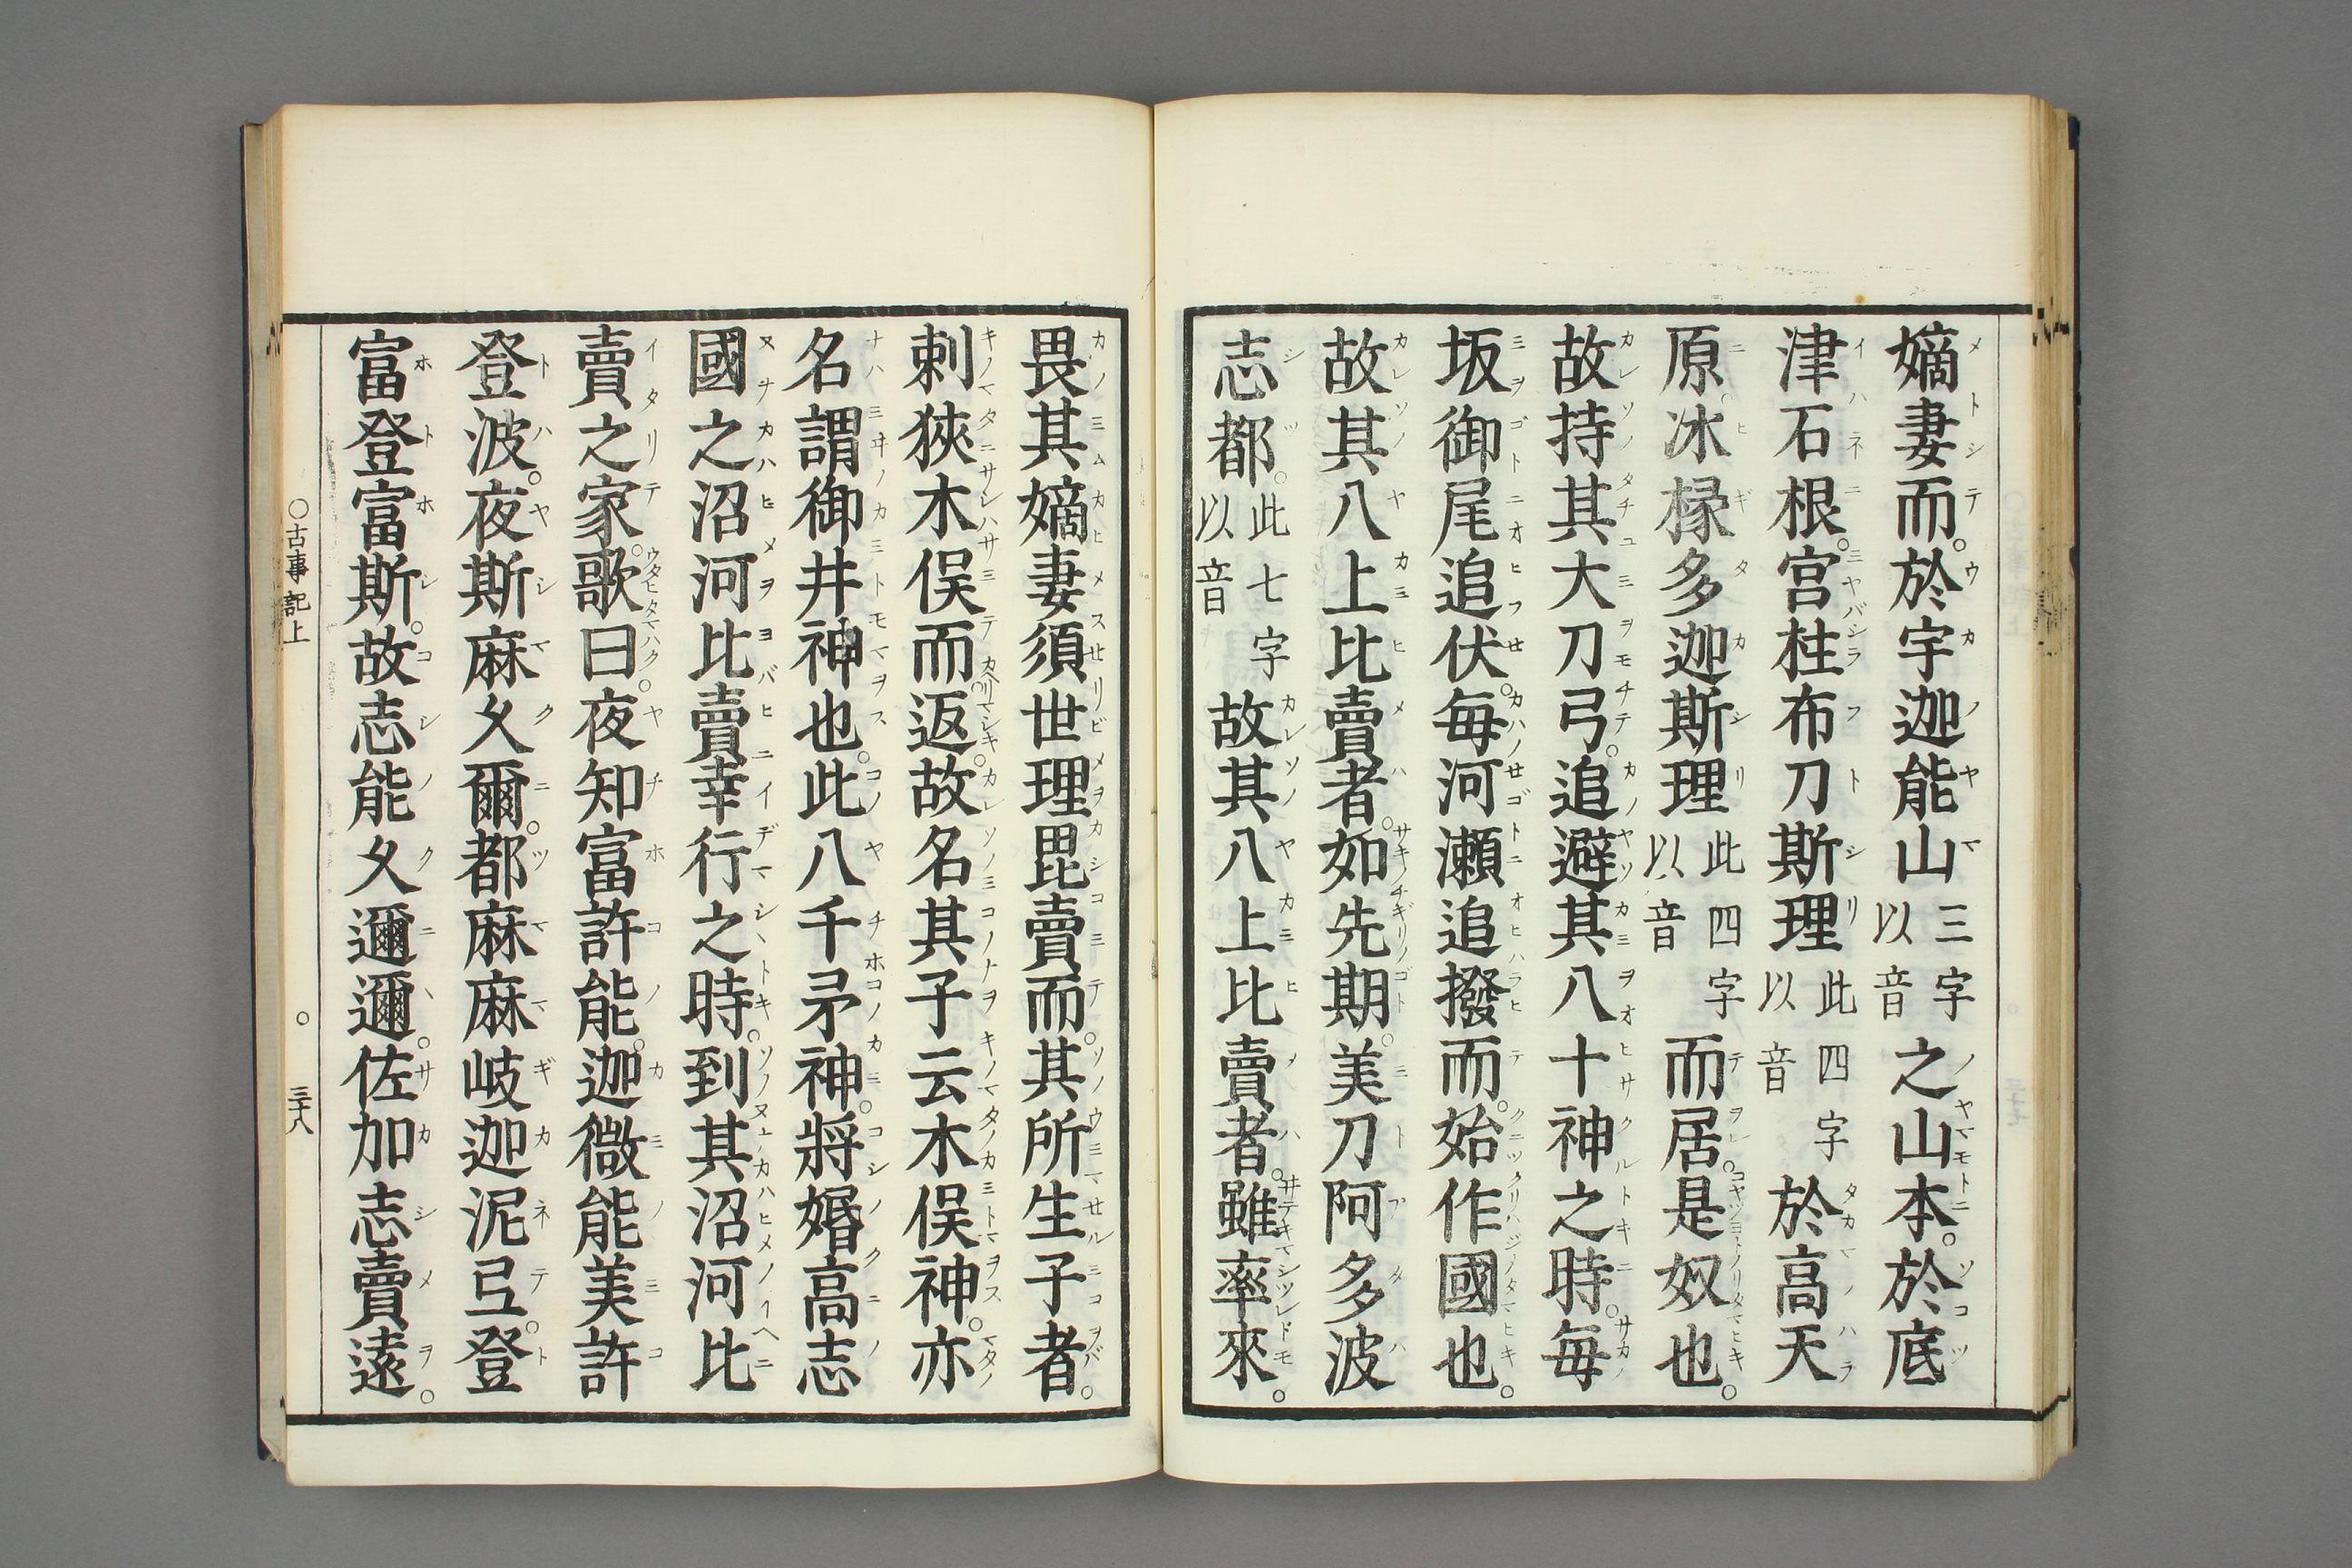 嫡妻而。於宇迦能山三字以音之山本。於底
津石根。宮柱布刀斯理此四字以音於高天
原。冰椽多迦斯理此四字以音而居。是奴也。
故持其大刀弓。追避其八十神之時。毎
坂御尾追伏。毎河瀬追撥而。始作國也。
故其八上比賣者。如先期。美刀阿多波
志都。此七字以音故其八上比賣者。雖率來。
畏其嫡妻須世理毘賣而。其所生子者。
刺狹木俣而。返。故名其子云木俣神。亦
名謂御井神也。此八千矛神。將婚高志
國之沼河比賣幸行之時。到其沼河比
賣之家。歌曰。夜知富許能。迦微能美許
登波。夜斯麻久爾。都麻麻岐迦泥弖。登
富登富斯。故志能久邇邇。佐加志賣遠。
○古事記上 ○ 三十八